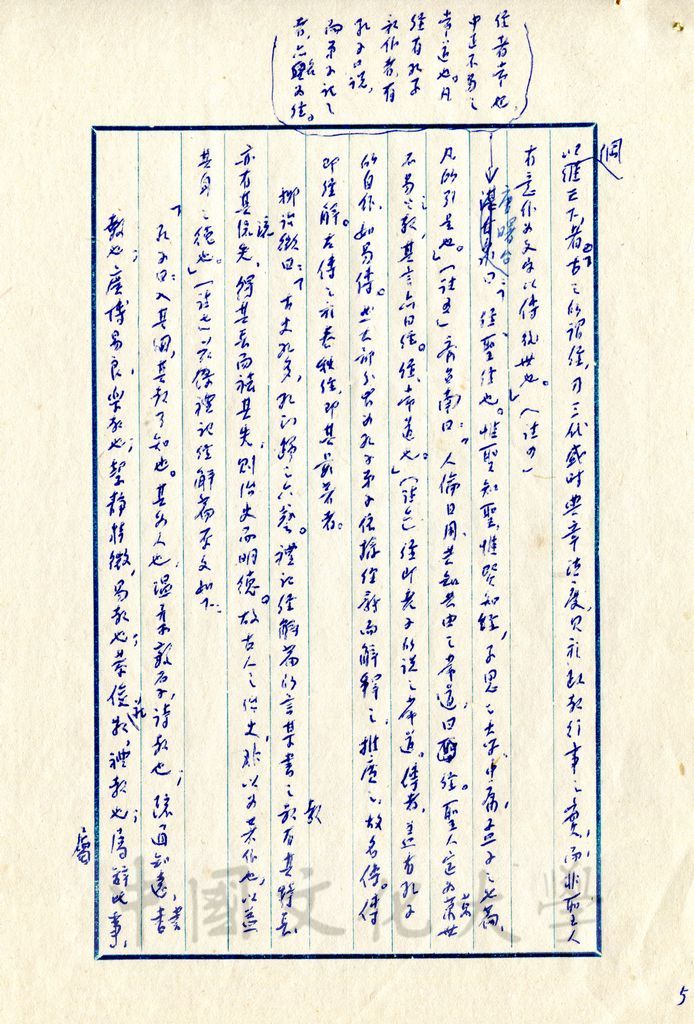 經者常也,
中正不易之
常道也。凡
經有孔子
親作者,有
孔子口說,
而弟子記之
者,亦名為經。
綱
以維天下者也。古之所謂經,乃三代盛時典章法度,見於政教行事之實,而非聖人
有意作為文字以傳後世也。」(註四)
唐曙台曰:「經聖經也。惟聖知聖,惟賢知經,子思之大學中庸,孟子之七篇,
凡所引是也。」(註五)章台南曰:「人倫日用,共知共由之常道曰經。聖人定為萬世
不易之教,其言亦曰經。經,常道也。」(註六)經即老子所說之常道。傳者,並有孔子
所自作,如易傳。然大部分皆為孔子弟子依據經辭而解釋之,推廣之,故名傳。傳
即經解。左傳之於春秋經,即其最著者。
柳詒徵曰:「古史孔多,孔門歸之六藝。禮記經解篇所言某書之教有其特長,
亦有其流失,得其長而祛其失,則治史而明德。故古人之治史,非以為某作也,以益
其身之德也。」(註七)茲併禮記經解篇原文如下:
「孔子曰:入其國,其教可知也。其為人也,溫柔敦厚,詩教也;疏通知遠,書
教也;廣博易良,樂教也;絜靜精微,易教也;恭儉莊敬,禮教也;屬辭比事,
中國文化大學
5